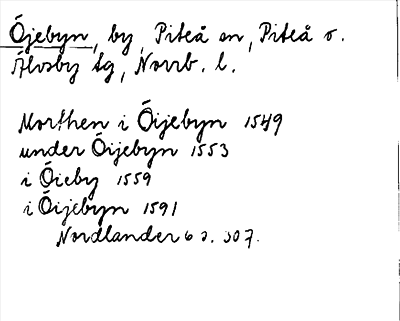 Öjebyn, by, Piteå sn, Piteå o.
Älvsby tg, Norrb. l.
Morthen i Öijebyn 1549
under Öijebyn 1553
i Öieby 1559
i Öijebyn 1591
Nordlander 6 s. 307.